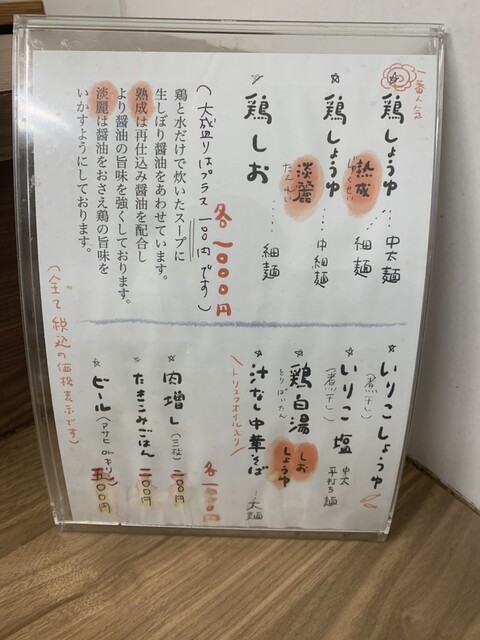 一番人気
鶏しょうゆ 熟成 じゅくせい … 中太麺 細麺
鶏しょうゆ 淡麗 たんれい … 中細麺
鶏しお … 細麺
各一〇〇〇円
(大盛りはプラス一〇〇円です)
鶏と水だけで炊いたスープに
生しぼり醤油をあわせています。
熟成は再仕込み醤油を配合し
より醤油の旨味を強くしております。
淡麗は醤油をおさえ鶏の旨味を
いかすようにしております。
いりこしょうゆ (煮干し)
いりこ塩 (煮干し) 中太 平打ち麺
鶏白湯 とりぱいたん しお しょうゆ
汁なし中華そば … 太麺
\トリュフオイル入り/
各一〇〇〇円
肉増し(三枚) 二〇〇円
たきこみごはん 二〇〇円
ビール(アサヒorキリン) 五〇〇円
(全て税込の価格表示です)